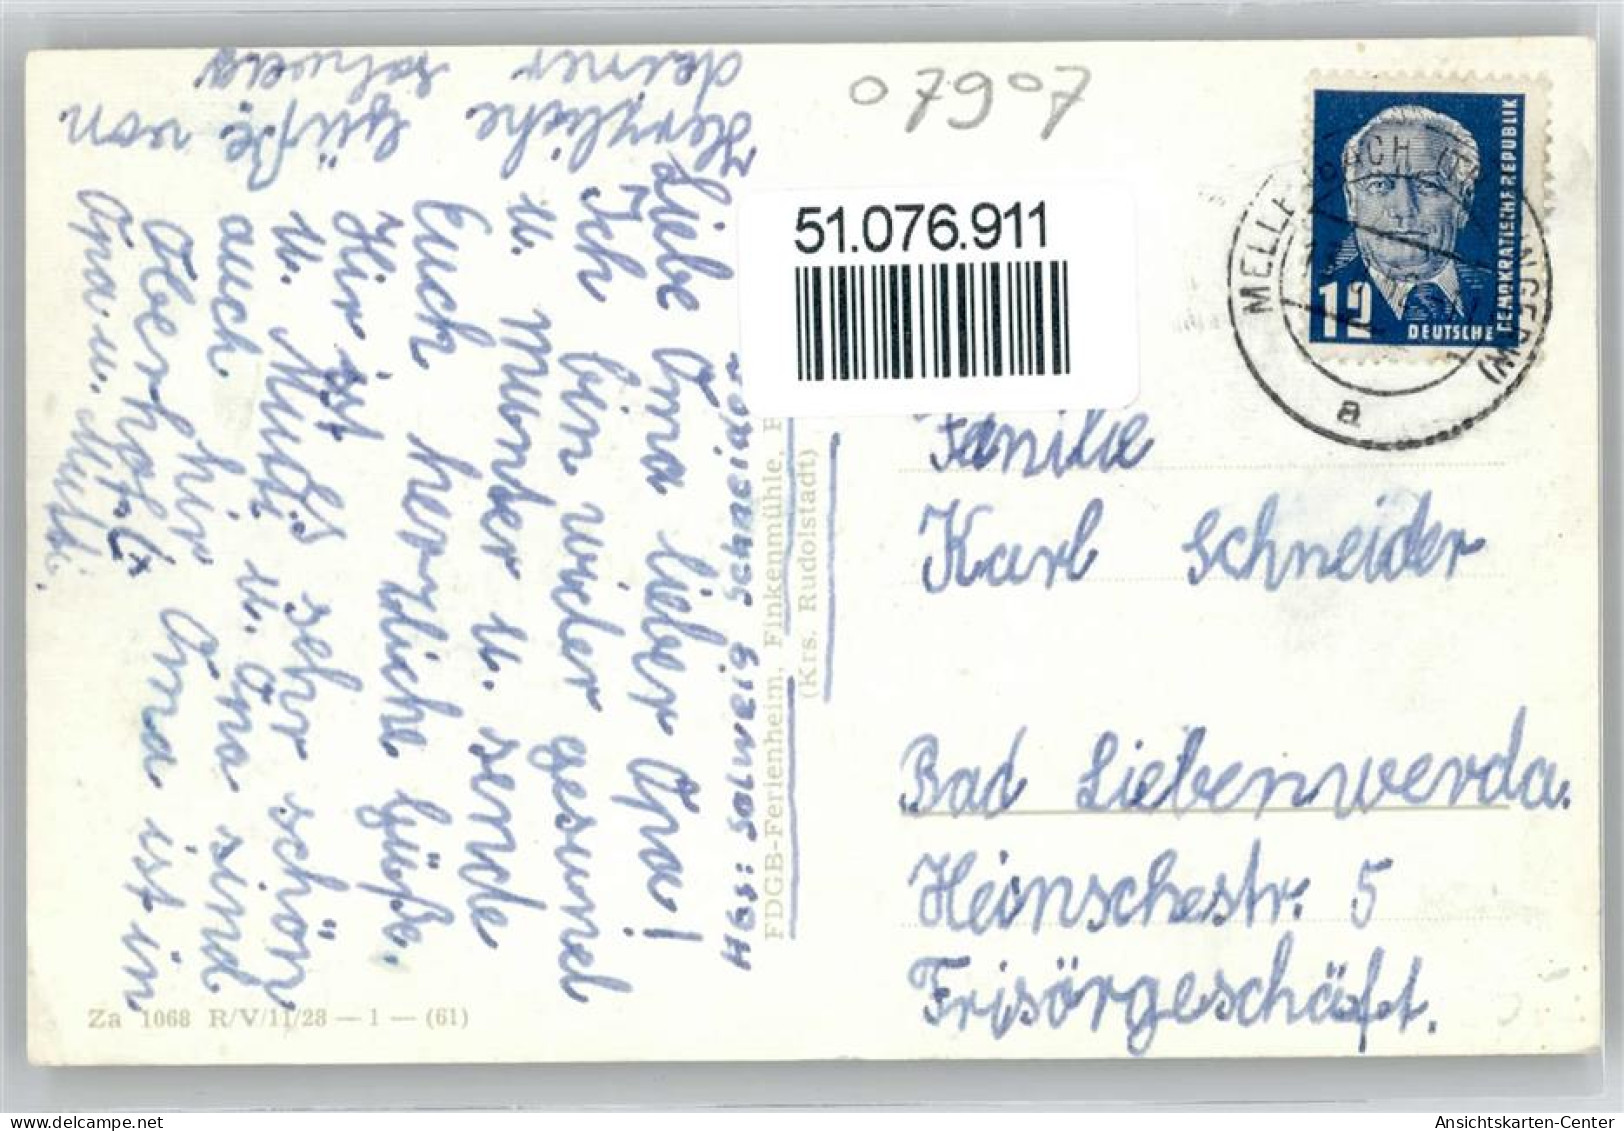 07907
51.076.911
12
DEUTSCHE
DEMOKRATISCHE REPUBLIK
a
Familie
Karl Schneider
Bad Liebenwerda.
Heinschestr. 5
Frisörgeschäft.
Abs: Solveig Schneider
FDGB-Ferienheim, Finkenmühle,
(Krs. Rudolstadt)
Liebe Oma lieber Opa!
Ich bin wieder gesund
u. munter u. sende
Euch herzliche Grüße.
Hir ist es sehr schön
u. Mutti u. Oma sind
auch hir Oma ist in
Oberhof.
Opa u. Mutti.
Herzliche Grüße von
deiner Solveig
Za 1068 R/V/11/28 — 1 — (61)
Ansichtskarten-Center